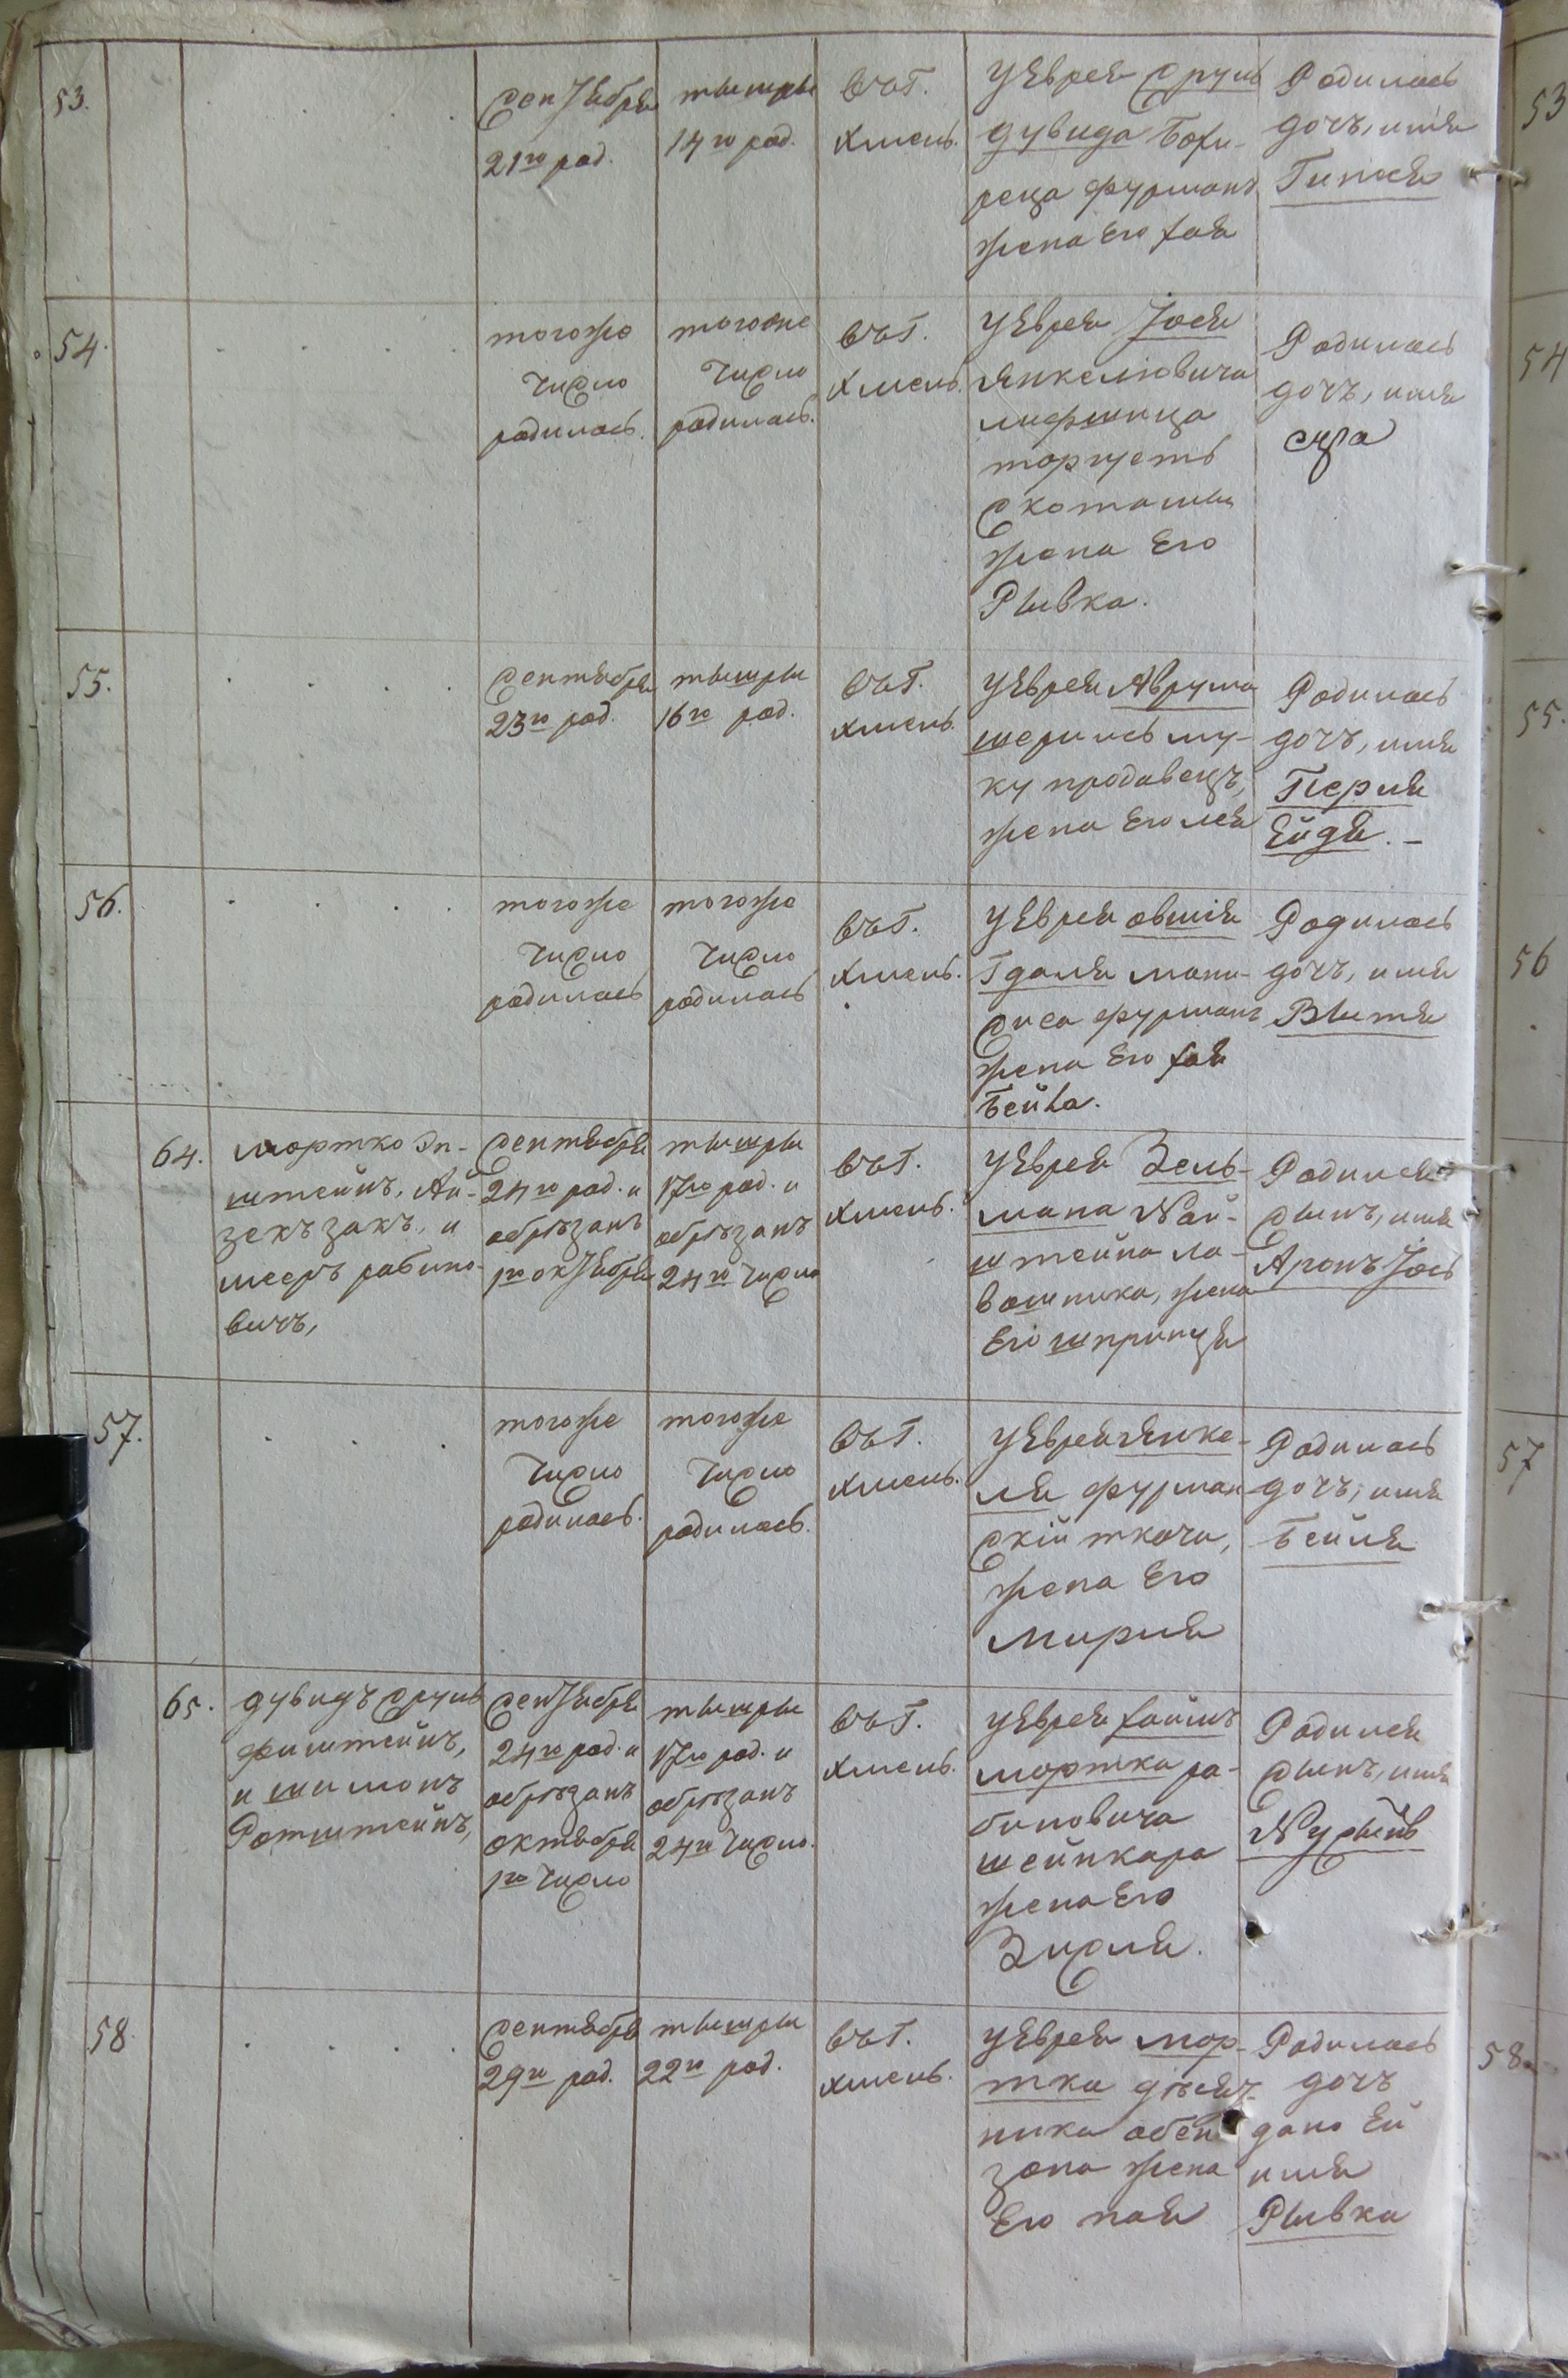 53.
Сентября
21го род.
тышры
14го род.
въ Г.
Хмель.
У Еврея Сруль
Дувида Бохи-
реца фурманъ
жена Его Хая
Родилась
дочъ, имя
Гитля
54.
тогоже
число
родилась.
тогоже
число
родилась.
въ Г.
Хмель.
У Еврея Іося
Янкелювича
лифшица
торгуетъ
скотамы
жена Его
Рывка.
Родилась
дочъ, имя
сура
55.
Сентября
23го род.
тышры
16го род.
въ Г.
Хмель.
У Еврея Аврума
шерись му-
ку продавецъ,
жена Его лея
Родилась
дочъ, имя
Перля
Ейдя. -
56.
тогоже
число
родилась
тогоже
число
родилась
въ Г.
Хмель.
У Еврея овшія
Гдаля мани-
сиса фурманъ
жена Его Хая
Бейла.
Родилась
дочъ, имя
Витя
64.
мортко Эп-
штейнъ, Ай-
зекъ закъ, и
мееръ рабино-
вичъ,
Сентября
24го род. и
обрѣзанъ
1го октября
тышры
17го род. и
обрѣзанъ
24го число
въ Г.
Хмель.
У Еврея Зель-
мана Вай-
штейна ла-
вошника, жена
Его шпринця
Родился
сынъ, имя
Аронъ Іось
57.
тогоже
число
родилась.
тогоже
число
родилась.
въ Г.
Хмель.
У Еврей Янке-
ля фурман
скій ткача,
жена Его
Мирия
Родилась
дочъ, имя
Бейля
65.
дувидъ сруль
фиштейнъ,
и шимонъ
Ротштейнъ,
Сентября
24го род. и
обрѣзанъ
октября
1го число
тышры
17го род. и
обрѣзанъ
24го число.
въ Г.
Хмель.
У Еврея Хаимъ
мортка ра-
биновича
шейнкара
жена Его
Зисля.
Родился
сынъ, имя
58
Сентября
29го род.
тышры
22го род.
въ Г.
Хмель.
У Еврея мор-
тка дѣсят-
ника обен
зона жена
Его пая
Родилась
дочъ
дано Ей
имя
Рывка
53
54
55.
56
57
58.